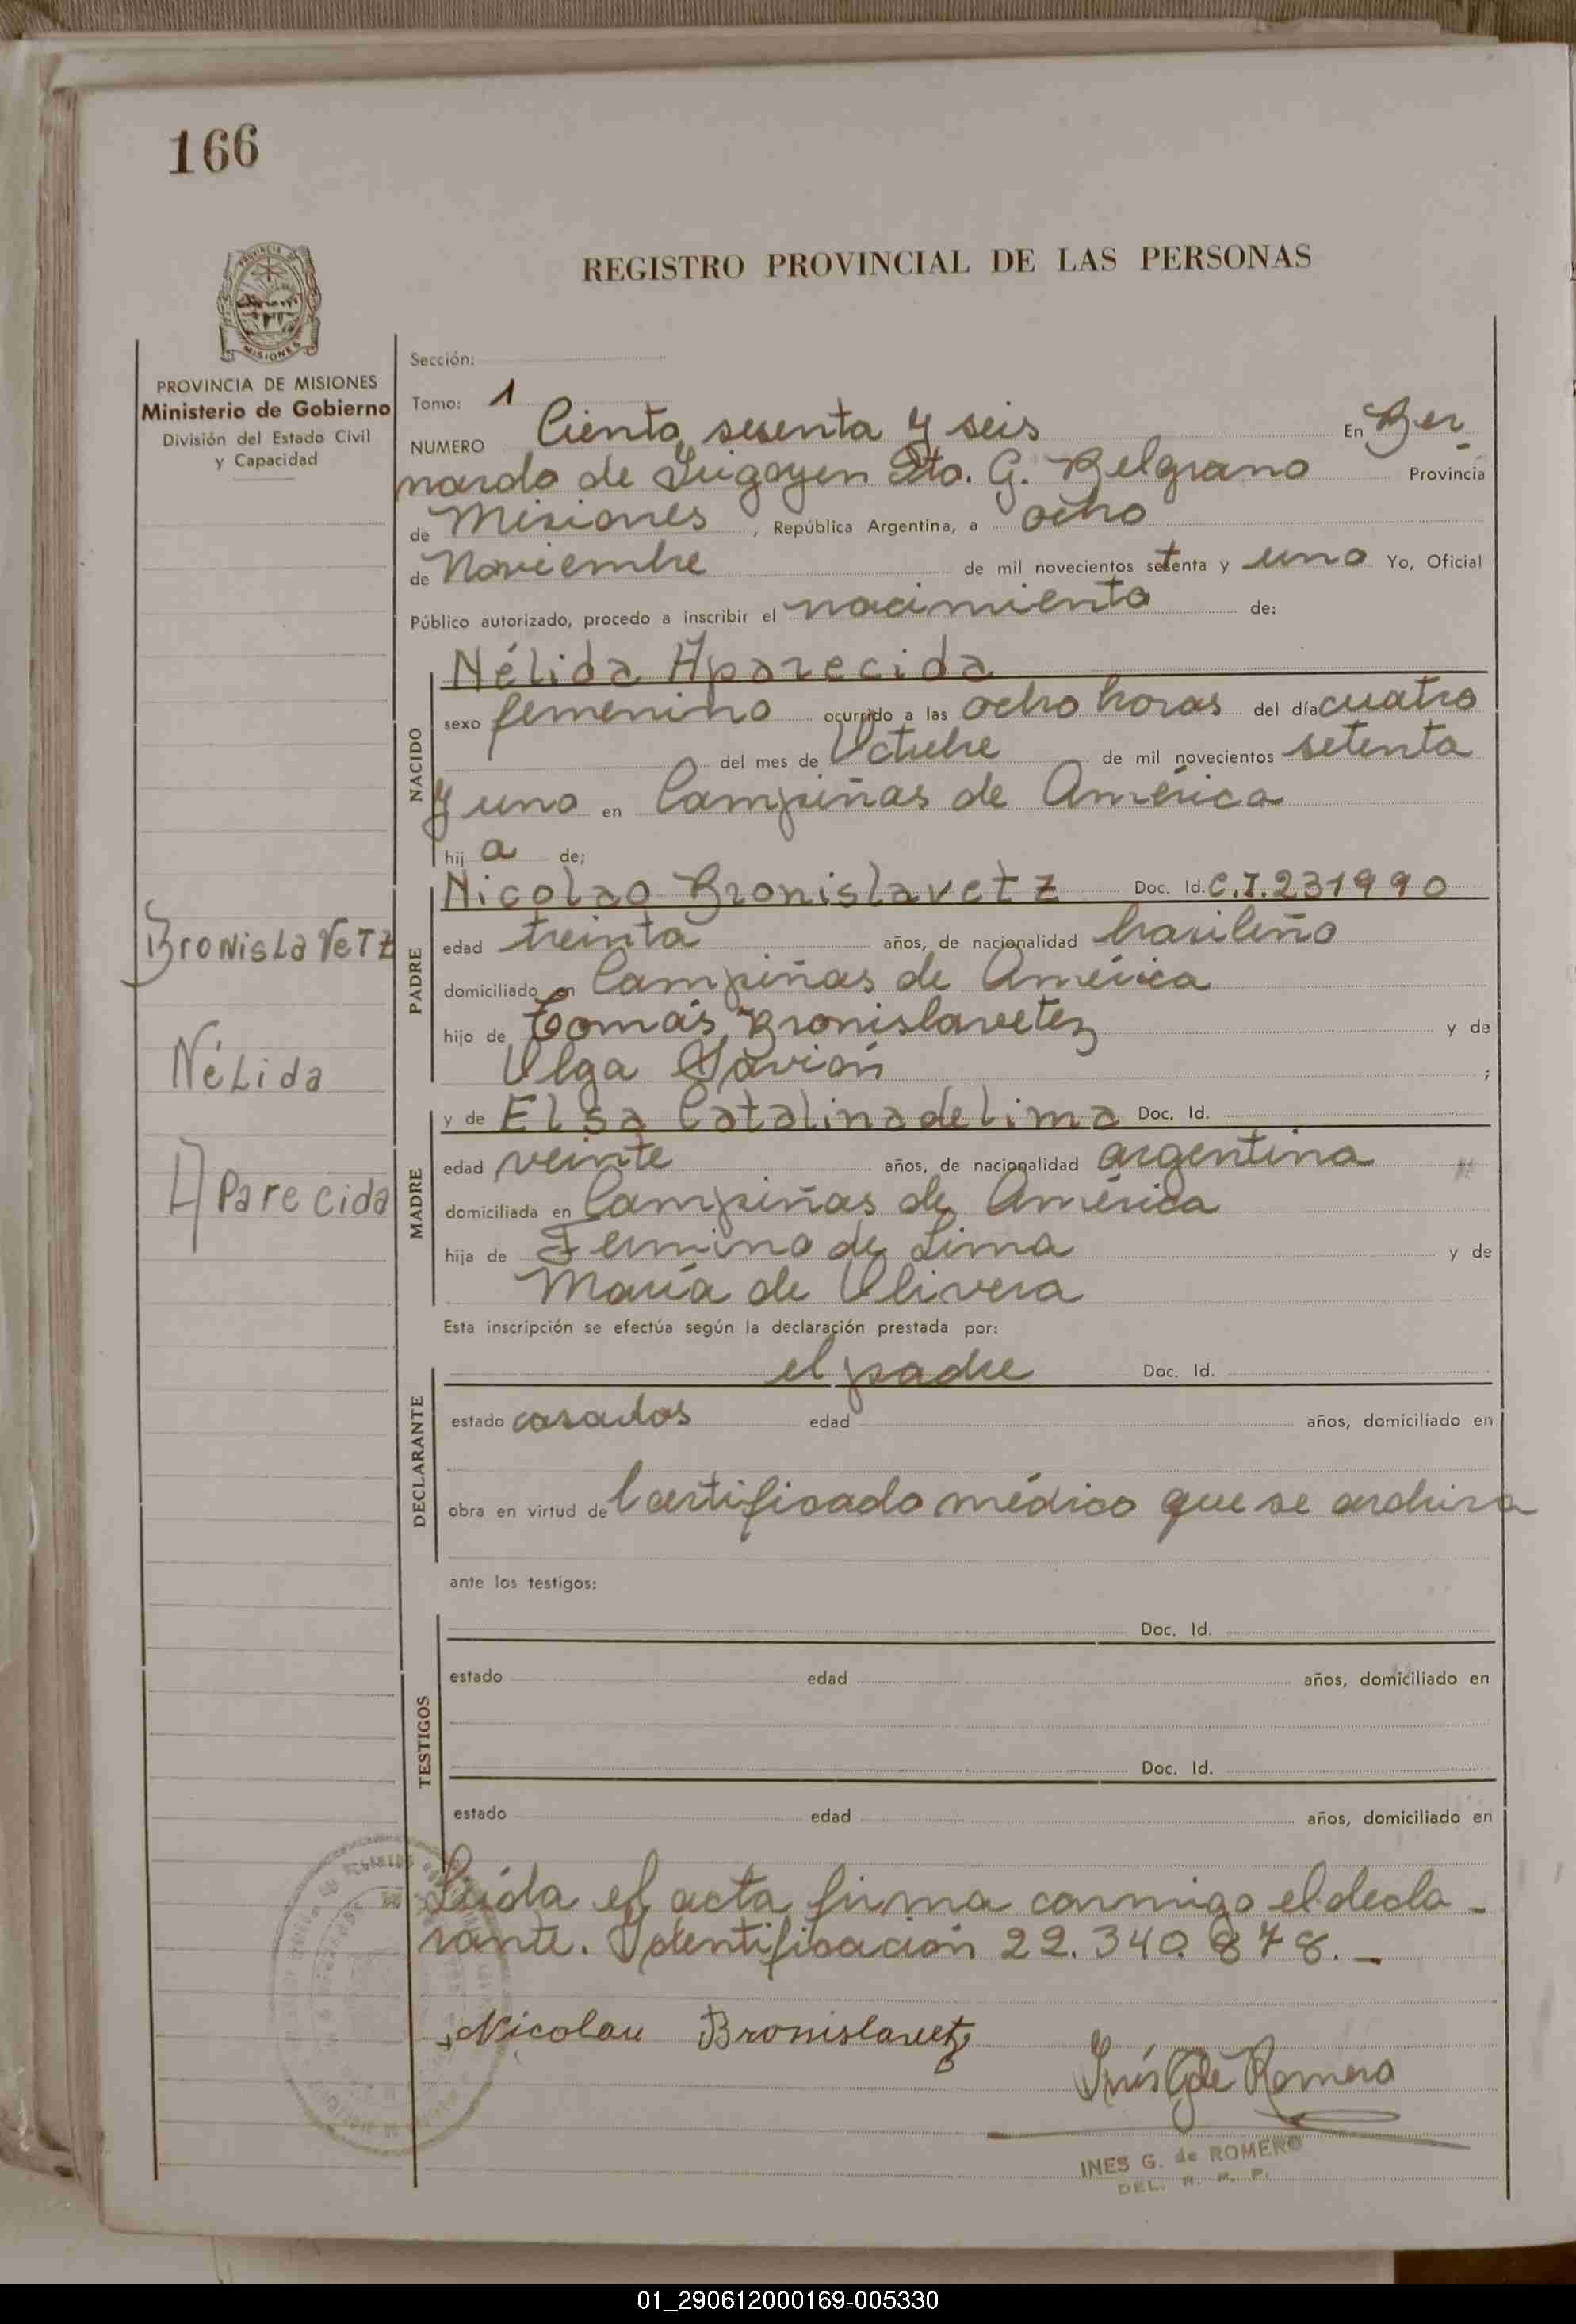 166
PROVINCIA DE MISIONES
Ministerio de Gobierno
División del Estado Civil
y Capacidad
REGISTRO PROVINCIAL DE LAS PERSONAS
Sección:
Tomo: 1
NUMERO Ciento sesenta y seis En Ber
nardo de Irigoyen Dto. G. Belgrano Provincia
de Misiones, República Argentina, a ocho
de Noviembre de mil novecientos setenta y uno Yo, Oficial
Público autorizado, procedo a inscribir el nacimiento de:
NACIDO
Nélida Aparecida
sexo femenino ocurrido a las ocho horas del día cuatro
del mes de Octubre de mil novecientos setenta
y uno en Campiñas de América
hij a de;
Bronislavetz
Nélida
Aparecida
PADRE
Nicolao Bronislavetz Doc. Id. C.I.231990
edad treinta años, de nacionalidad brasileño
domiciliado en Campiñas de América
hijo de Tomás Bronislavetez y de
Olga ;
MADRE
y de Elsa Catalina de lima Doc. Id.
edad veinte años, de nacionalidad argentina
domiciliada en Campiñas de América
hija de Fermino de Lima y de
María de Olivera
Esta inscripción se efectúa según la declaración prestada por:
DECLARANTE
el padre Doc. Id.
estado casados edad años, domiciliado en
obra en virtud de Certificado médico que se archiva
ante los testigos:
TESTIGOS
Doc. Id.
estado edad años, domiciliado en
Doc. Id.
estado edad años, domiciliado en
Leída el acta firma conmigo el decla-
rante. Identificación 22.340.878.-
Nicolau Bronislavetz
Inés G de Romero
INES G. de ROMERO
DEL. R. P.
01_290612000169-005330